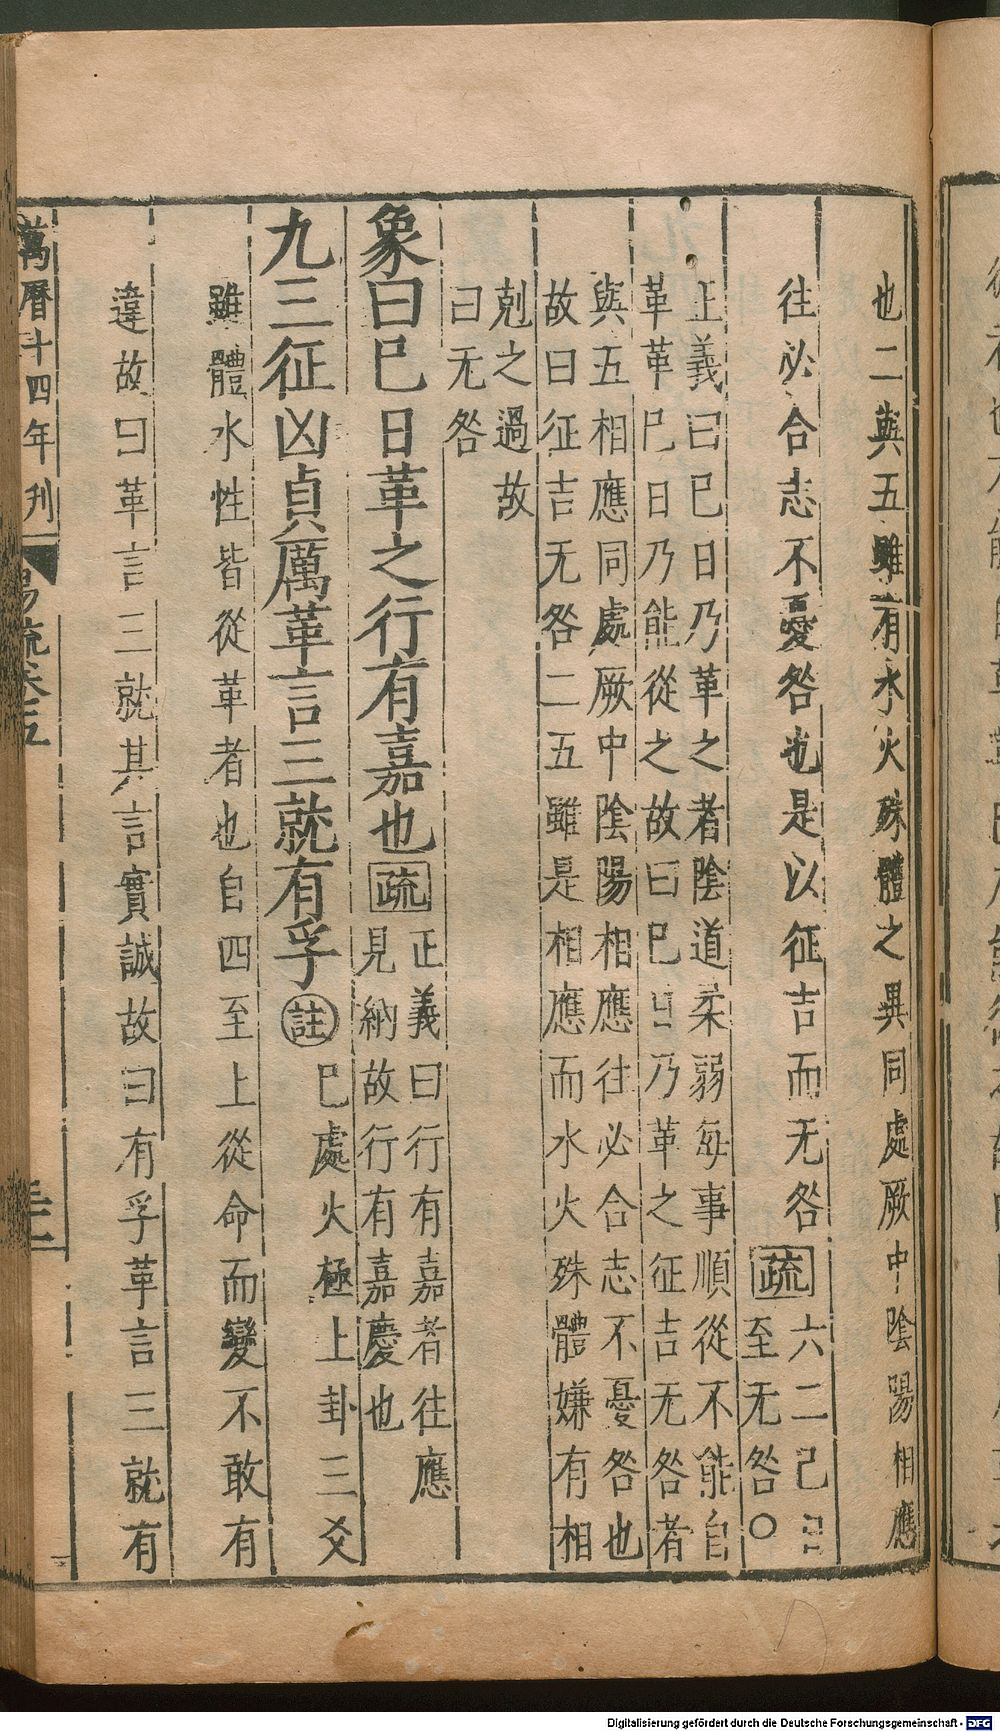 也二與五雖有水火殊體之異同處厥中陰陽相應
往必合志不憂咎也是以征吉而无咎疏六二已日
至无咎○
正義曰巳日乃革之者陰道柔弱每事順從不能自
革革巳日乃能從之故曰巳日乃革之征吉无咎者
與五相應同處厥中陰陽相應往必合志不憂咎也
故曰征吉无咎二五雖是相應而水火殊體嫌有相
剋之過故
曰无咎
象曰巳日革之行有嘉也疏正義曰行有嘉者往應
見納故行有嘉慶也
九三征凶貞厲革言三就有孚註巳處火極上卦三爻
雖體水性皆從革者也自四至上從命而變不敢有
違故曰革言三就其言實誠故曰有孚革言三就有
萬曆十四年刊
易疏卷五
Digitalisierung gefördert durch die Deutsche Forschungsgemeinschaft - DFG